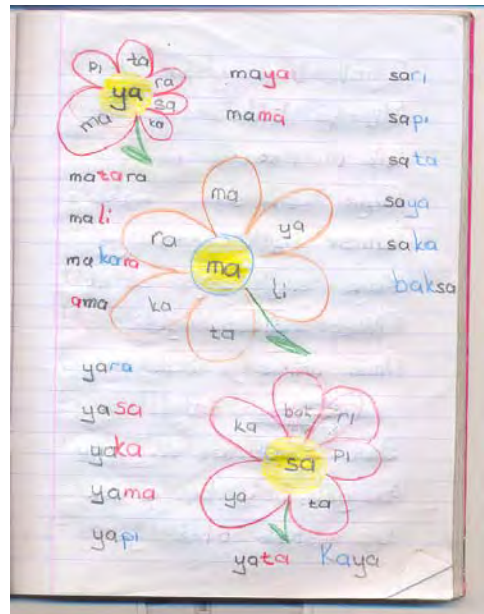 pı ta ra sa ka ma
ya
maya
mama
sarı
sapı
sata
saya
saka
baksa
matara
mali
makara
ama
ma ya li ta ka ra
ma
yara
yasa
yaka
yama
yapı
bak rı pı ta ya ka
sa
yata Kaya